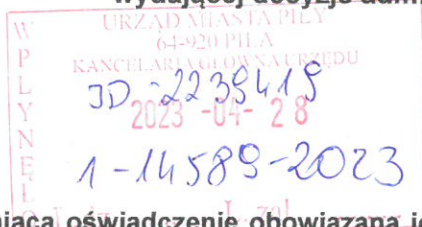 wydającej decyzję adm
WPŁYNĘŁO
URZĄD MIASTA PIŁY
64-920 PIŁA
KANCELARIA GŁÓWNA URZĘDU
JD-2239419
2023 -04- 28
1-14589-2023
L. zał.
oświadczenie obowiązana